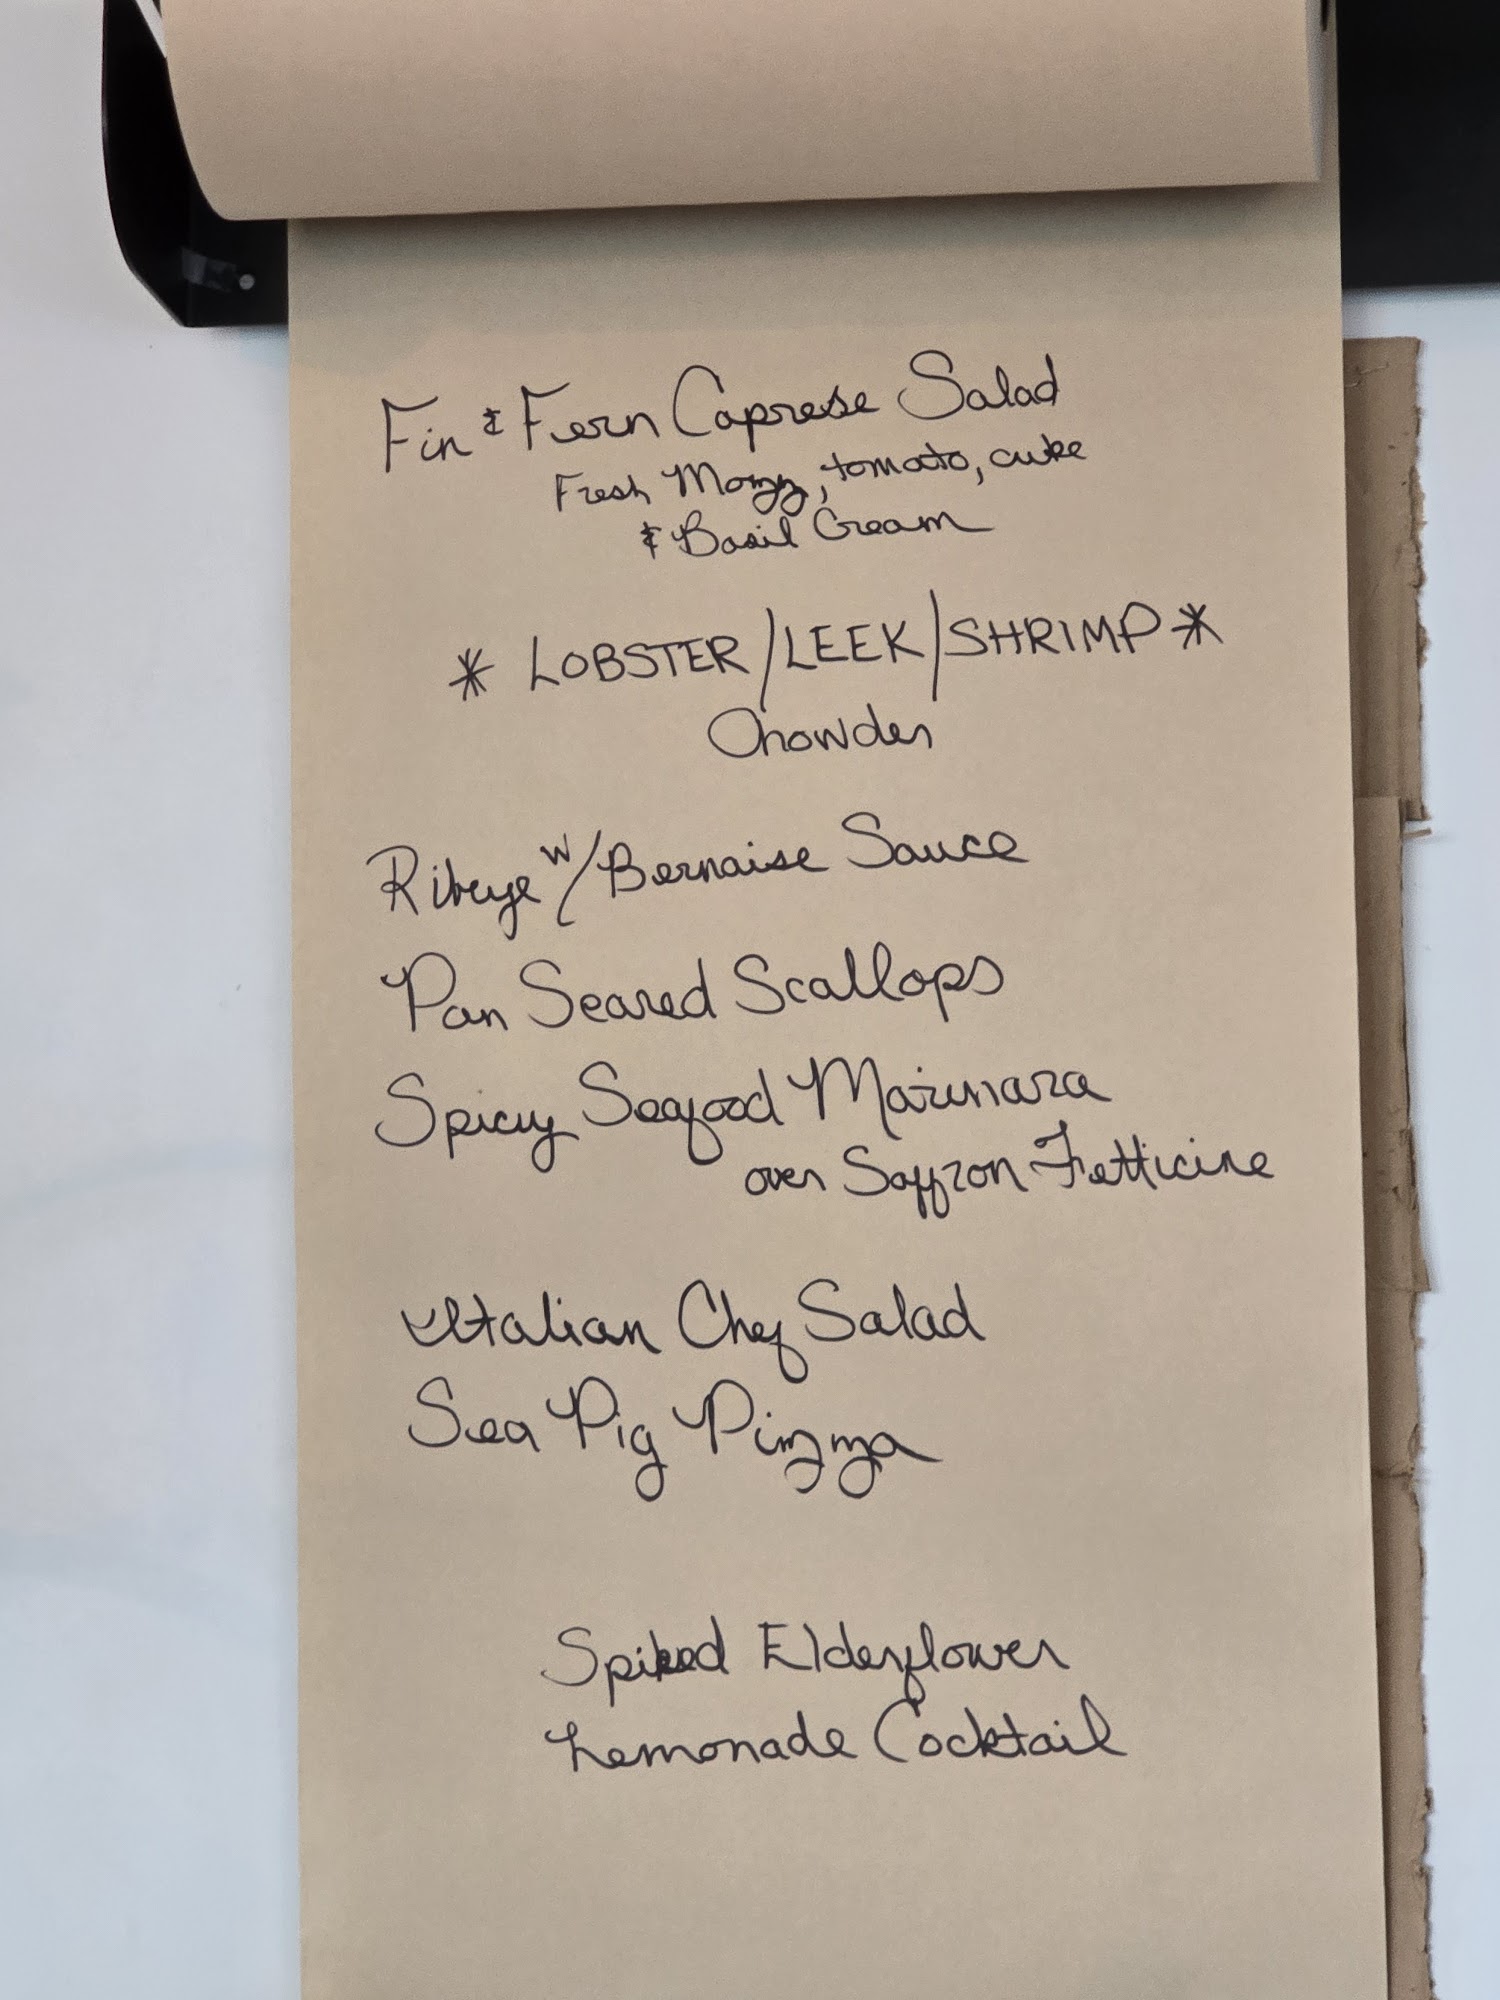 Fin & Fern Caprese Salad
Fresh Mozz, tomato, cuke
& Basil Cream
* LOBSTER/LEEK/SHRIMP *
Chowder
Ribeye w/Bernaise Sauce
Pan Seared Scallops
Spicy Seafood Marinara
over Saffron Fetticine
Italian Chef Salad
Sea Pig Pizza
Spiked Elderflower
Lemonade Cocktail